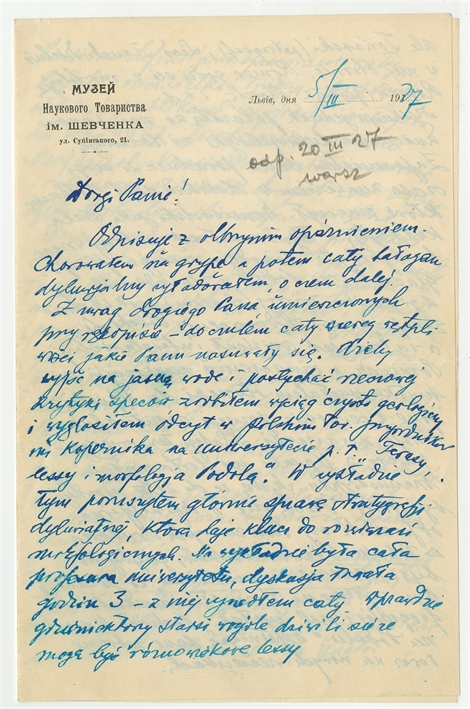 МУЗЕЙ
Наукового Товариства
ім. ШЕВЧЕНКА
ул. Супінського, 21.
Львів, дня 5/III 1927
odp. 20 III 27
warsz
Drogi Panie!
Odpisuję z olbrzymim opóźnieniem.
Chorowałem na grypę a potem cały bałagan
dyluwjalny wyładowałem, o czem dalej.
Z uwag drogiego Pana umieszczonych
przy rękopisie – doczułem cały szereg wątpli
wości jakie Panu nasunęły się. Ażeby
wyjść na jasną wodę i posłychać rzeczowej
krytyki speców zrobiłem wyciąg czysto geologiczny
i wygłosiłem odczyt w Polskim Tow. Przyrodników
im Kopernika na uniwersytecie p. t. "Terasy
lessy i morfologja Podola". W wykładzie
tym poruszyłem głównie sprawę stratygrafji
dyluwjalnej, która daje klucz do rozwiązań
morfologicznych. Na wykładzie była cała
profesura uniwersytetu, dyskusja trwała
godzin 3 – z niej wyszedłem cały. Wprawdzie
niektórzy starsi dziwili się że
mogą być różnowiekowe lessy